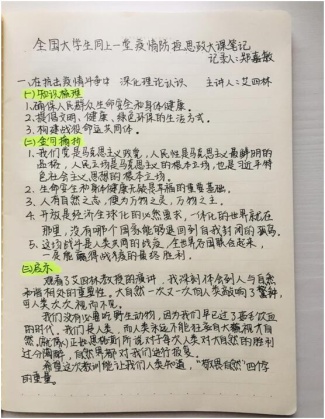 全国大学生同上一堂疫情防控思政大课笔记
记录人:郑嘉敏
一、在抗击疫情斗争中 深化理论认识 主讲人:艾四林
(一)知识梳理
1.确保人民群众生命安全和身体健康。
2.提倡文明、健康、绿色环保的生活方式。
3.构建战疫命运共同体。
(二)金句摘抄
1.我们党是马克思主义政党,人民性是马克思主义最鲜明的
品格,人民立场是马克思主义的根本立场,也是习近平特
色社会主义思想的根本立场。
2.生命安全和身体健康无疑是幸福的重要基础。
3.人有自然之灵,便为万物之灵,万物之主。
4.开放是经济全球化的必然要求,一体化的世界就在
那里,没有哪个国家能够退回到自我封闭的孤岛。
5.这场战斗是人类共同的战疫,全世界各国联合起来,
一定能赢得战疫的最终胜利。
(三)启示
观看了艾四林教授的演讲,我深刻体会到人与自然
和谐相处的重要性。大自然一次又一次向人类敲响了警钟,
可人类次次视而不见。
我们没有必要吃野生动物,因为我们早已过了要冬饮血
的时代,我们是人类,而人类永远不能狂妄自大藐视大自
然。就像恩格斯所说对于每次人类对大自然的胜利
过分陶醉,自然界都对我们进行报复。
希望这次教训能让我们人类知道,“敬畏自然”四字
的重量。